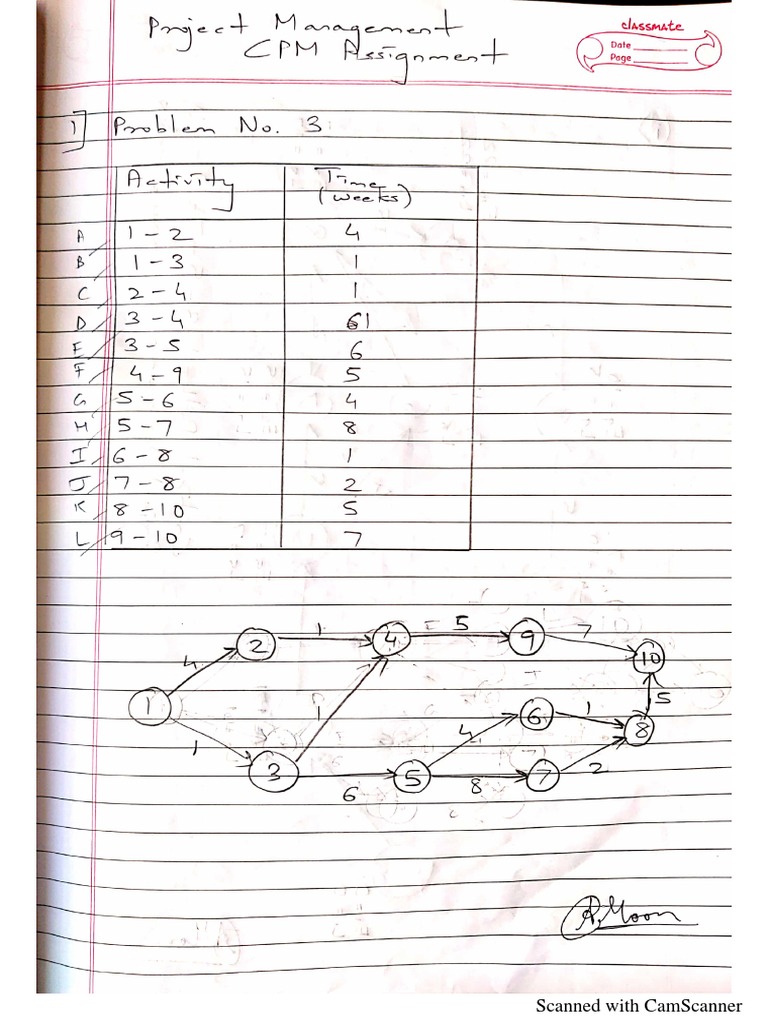 Project Management
CPM Assignment
classmate
Date
Page
1] Problem No. 3
Activity Time (weeks)
A 1 - 2 4
B 1 - 3 1
C 2 - 4 1
D 3 - 4 1
E 3 - 5 6
F 4 - 9 5
G 5 - 6 4
H 5 - 7 8
I 6 - 8 1
J 7 - 8 2
K 8 - 10 5
L 9 - 10 7
2 1 4 5 9 7 10
4
1 1 1 6 1 8 5
4
3 6 5 8 7 2
A.Moon
Scanned with CamScanner